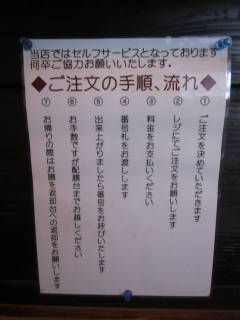 当店ではセルフサービスとなっております
何卒ご協力お願いいたします。
◆ご注文の手順、流れ◆
① ご注文を決めていただきます
② レジにてご注文をお願いします
③ 料金をお支払いください
④ 番号札をお渡しします
⑤ 出来上がりましたら番号をお呼びいたします
⑥ お手数ですが配膳台までお越しください
⑦ お帰りの際はお膳を返却台への返却をお願いします